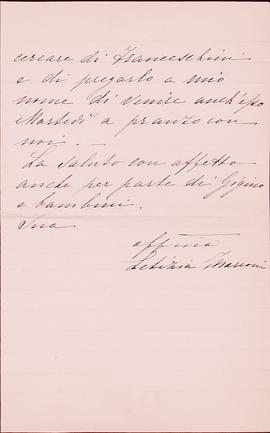 cercare di Franceschini
e di pregarlo a mio
nome di venire anch'esso
Martedì a pranzo con
noi. —
La saluto con affetto
anche per parte di Gigino
e bambini.
Sua
affma
Letizia